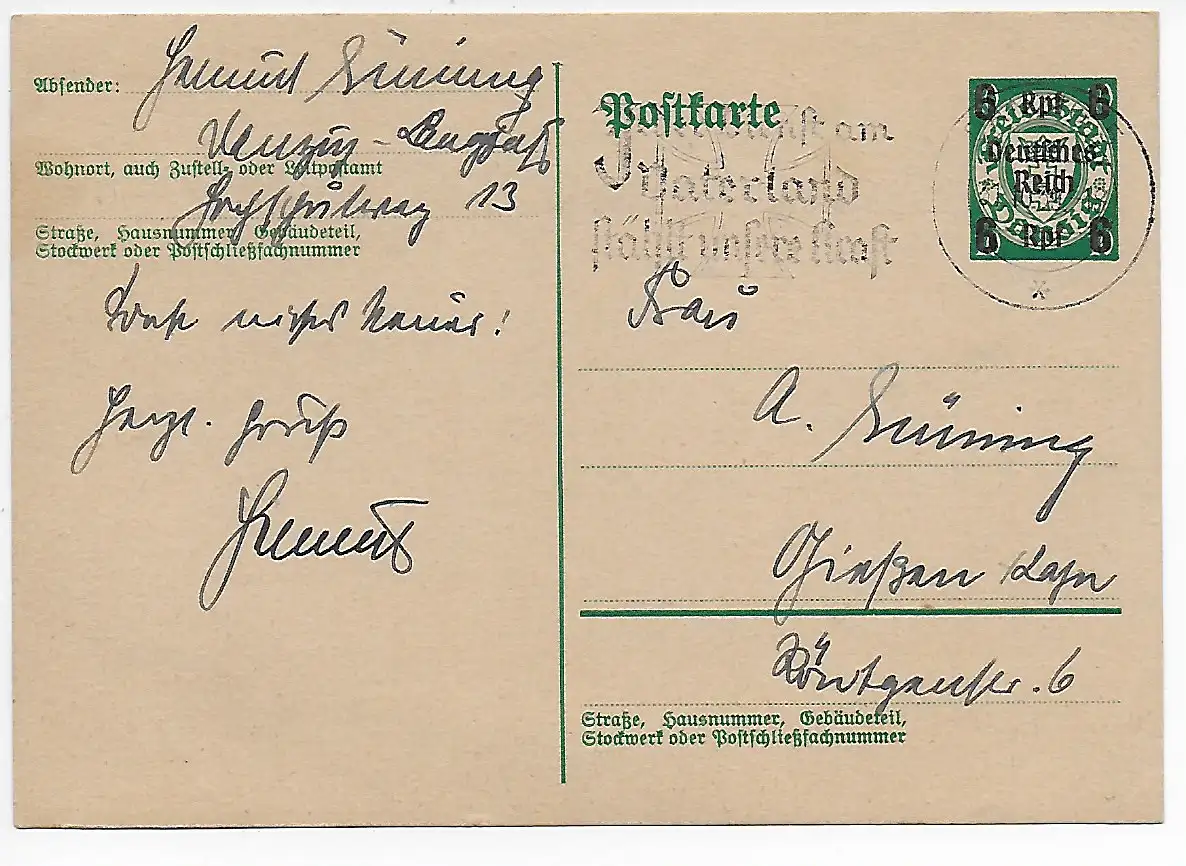 Absender: Helmut Lüning
Danzig-Langfuhr
Wohnort, auch Zustell- oder Leitpostamt
Hochschulweg 13
Straße, Hausnummer, Gebäudeteil,
Stockwerk oder Postschließfachnummer
Sonst nichts Neues!
Herzl. Gruß
Helmut
Postkarte
am
Vaterland
stählt unsere Kraft
6 Rpf 6
Deutsches
Reich
6 Rpf 6
Frau
A. Lüning
Gießen Lahn
Röntgenstr. 6
Straße, Hausnummer, Gebäudeteil,
Stockwerk oder Postschließfachnummer